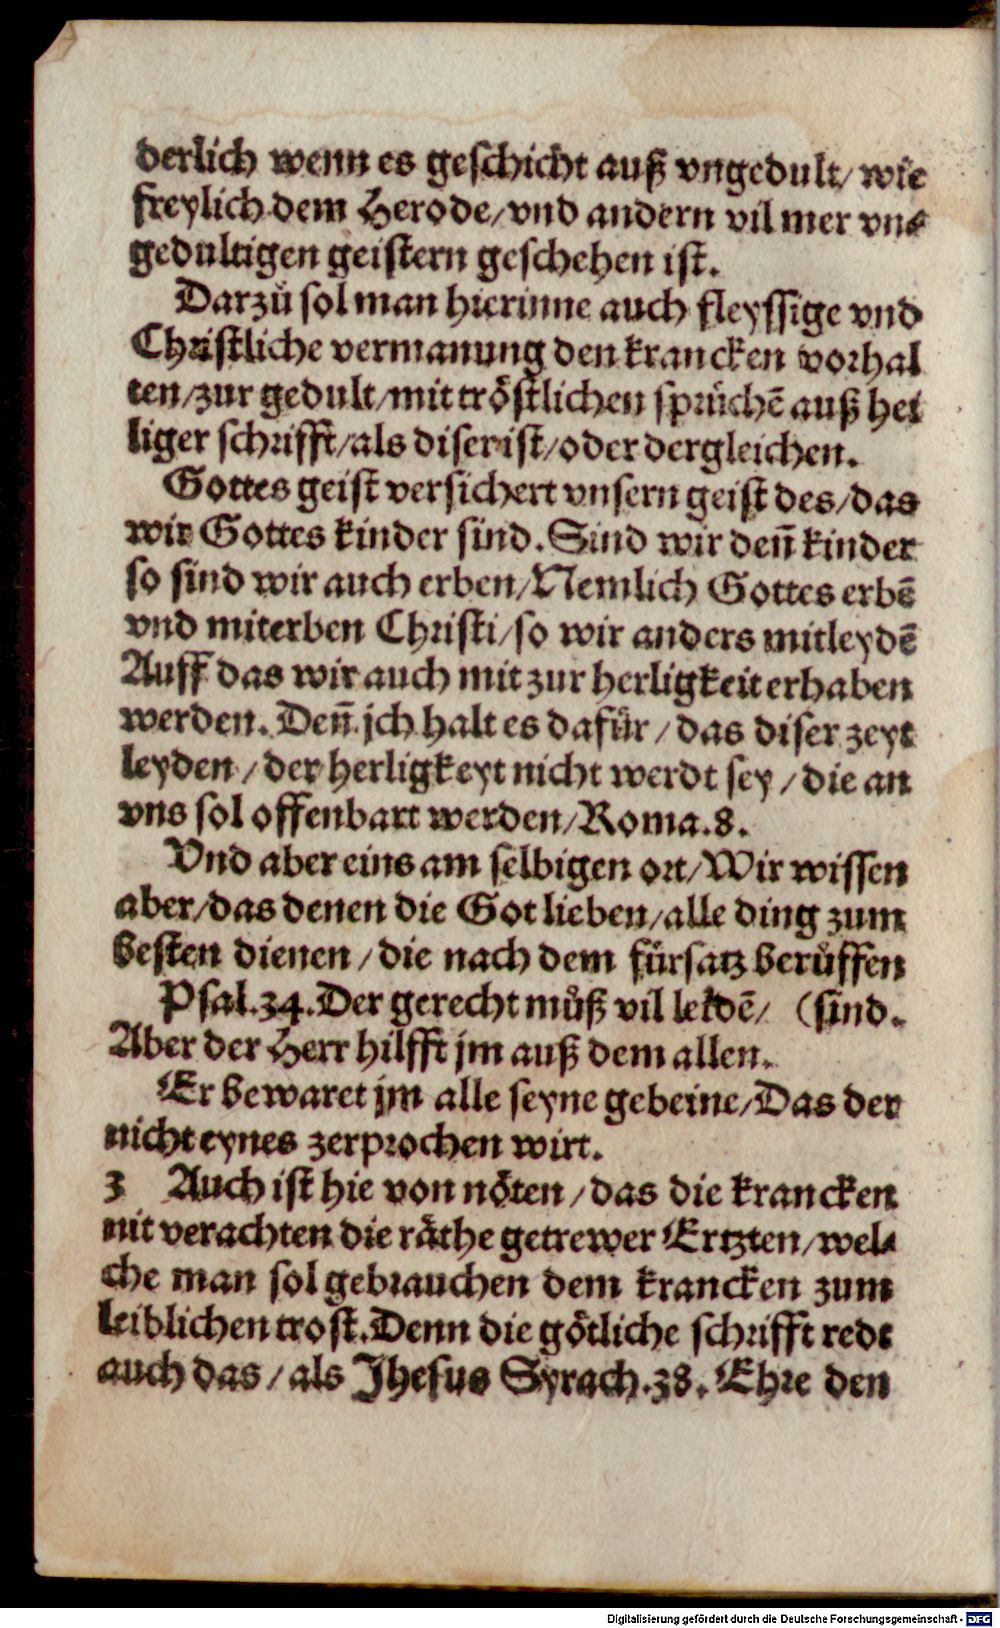 derlich wenn es geschicht auß vngedult/ wie
freylich dem Herode/ vnd andern vil mer vn⸗
gedultigen geistern geschehen ist.
Darzů sol man hierinne auch fleyssige vnd
Christliche vermanung den krancken vorhal
ten/ zur gedult/ mit tröstlichen sprüchē auß hei
liger schrifft/ als diser ist/ oder dergleichen.
Gottes geist versichert vnsern geist des/ das
wir Gottes kinder sind. Sind wir deñ kinder
so sind wir auch erben/ Nemlich Gottes erbē
vnd miterben Christi/ so wir anders mitleydē
Auff das wir auch mit zur herligkeit erhaben
werden. Deñ jch halt es dafür / das diser zeyt
leyden / der herligkeyt nicht werdt sey / die an
vns sol offenbart werden/ Roma.8.
Vnd aber eins am selbigen ort/ Wir wissen
aber/ das denen die Got lieben/ alle ding zum
besten dienen / die nach dem fürsatz berůffen
Psal.34. Der gerecht můß vil leidē/ (sind.
Aber der Herr hilfft jm auß dem allen.
Er bewaret jm alle seyne gebeine/ Das der
nicht eynes zerprochen wirt.
3 Auch ist hie von nöten / das die krancken
nit verachten die räthe getrewer Ertzten/ wel⸗
che man sol gebrauchen dem krancken zum
leiblichen trost. Denn die götliche schrifft redt
auch das / als Jhesus Syrach.38. Ehre den
Digitalisierung gefördert durch die Deutsche Forschungsgemeinschaft - DFG